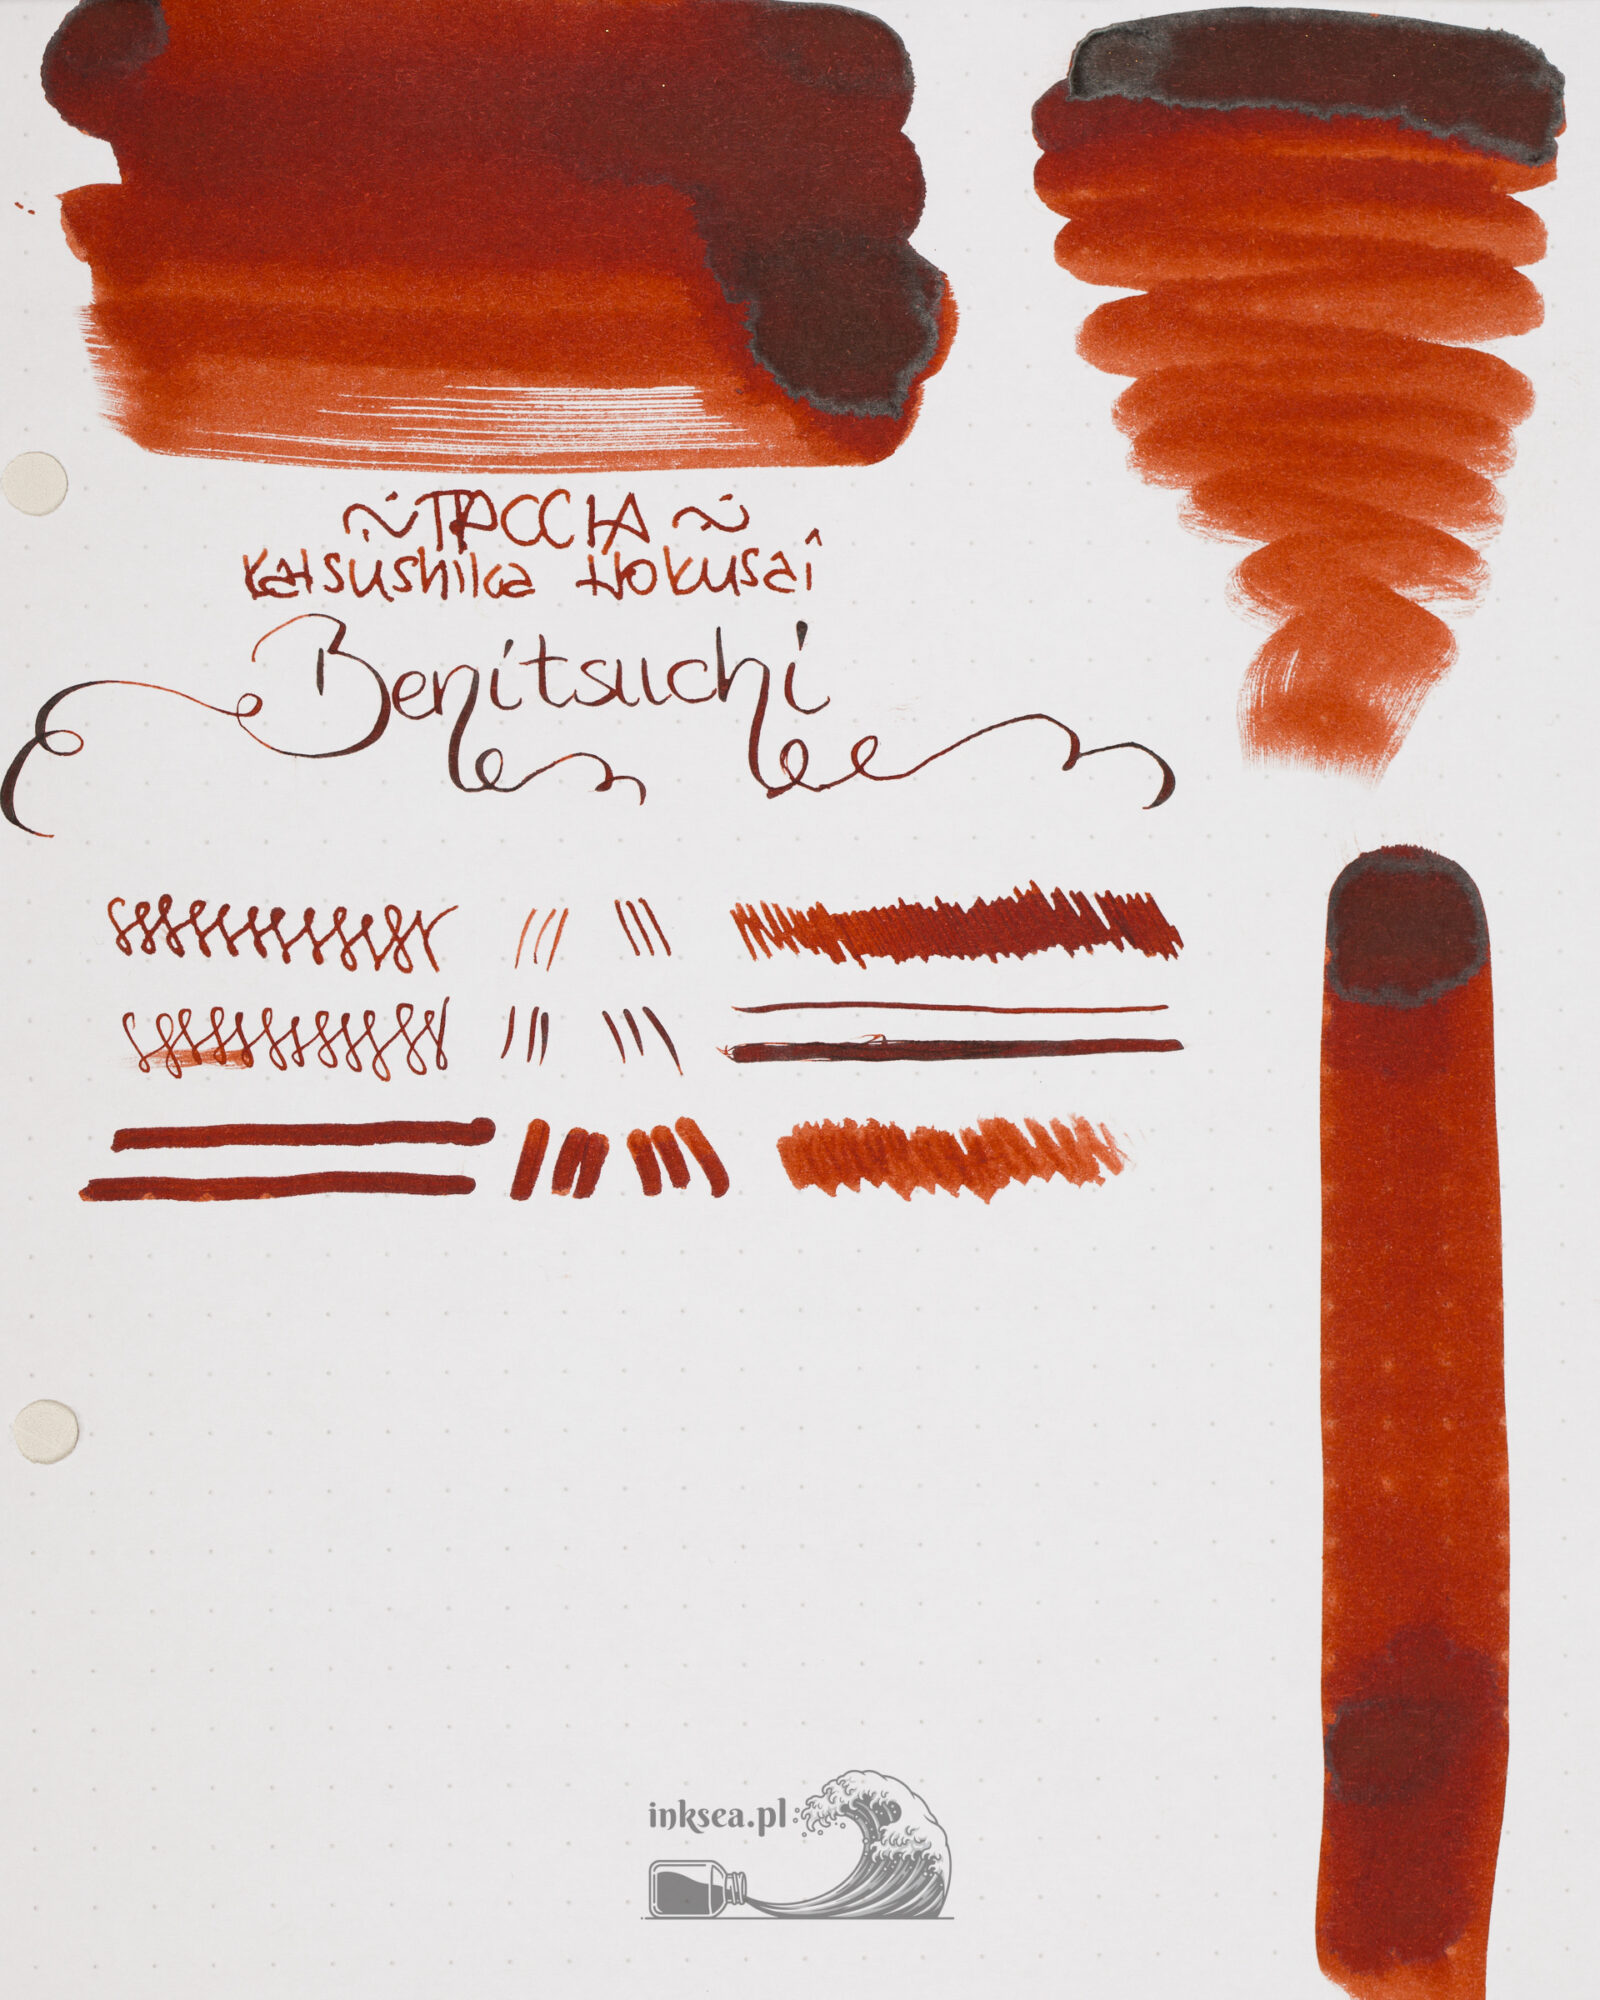 ~TACCIA~
Katsushika Hokusai
Benitsuchi
inksea.pl